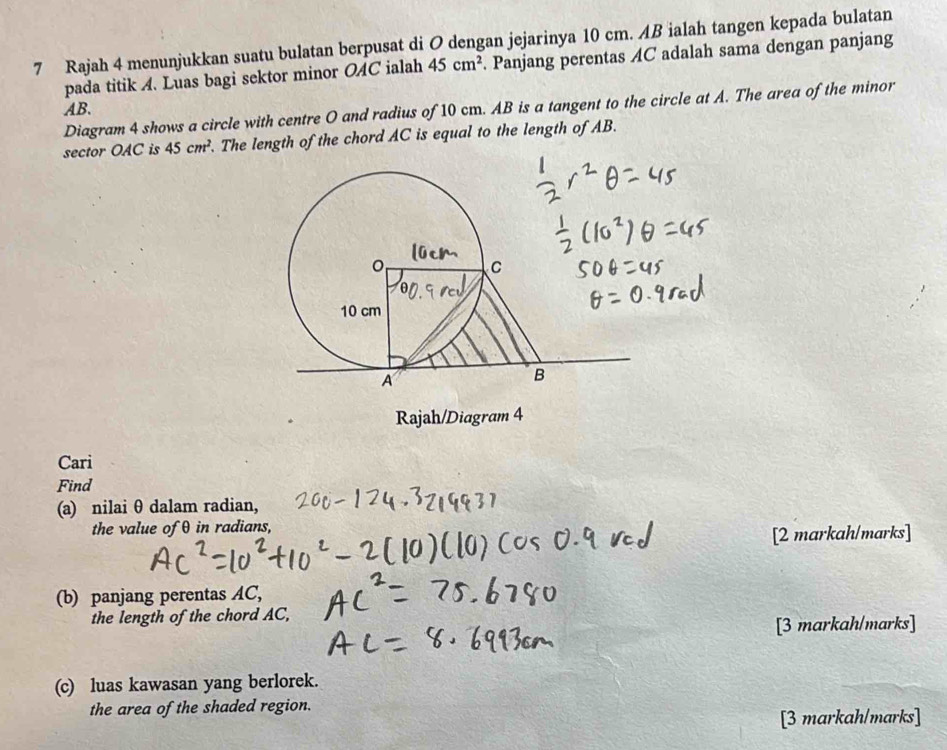 7 Rajah 4 menunjukkan suatu bulatan berpusat di O dengan jejarinya 10 cm. AB ialah tangen kepada bulatan
pada titik A. Luas bagi sektor minor OAC ialah 45 cm². Panjang perentas AC adalah sama dengan panjang
AB.
Diagram 4 shows a circle with centre O and radius of 10 cm. AB is a tangent to the circle at A. The area of the minor
sector OAC is 45 cm². The length of the chord AC is equal to the length of AB.
1/2 r² θ = 45
1/2 (10²) θ = 45
50θ = 45
θ = 0.9 rad
10cm
O
C
θ 0.9 rad
10 cm
A
B
Rajah/Diagram 4
Cari
Find
(a) nilai θ dalam radian,
200 - 124.3219937
the value of θ in radians,
[2 markah/marks]
AC² = 10² + 10² - 2(10)(10) cos 0.9 rad
(b) panjang perentas AC,
AC² = 75.6780
the length of the chord AC,
[3 markah/marks]
AC = 8.6993cm
(c) luas kawasan yang berlorek.
the area of the shaded region.
[3 markah/marks]